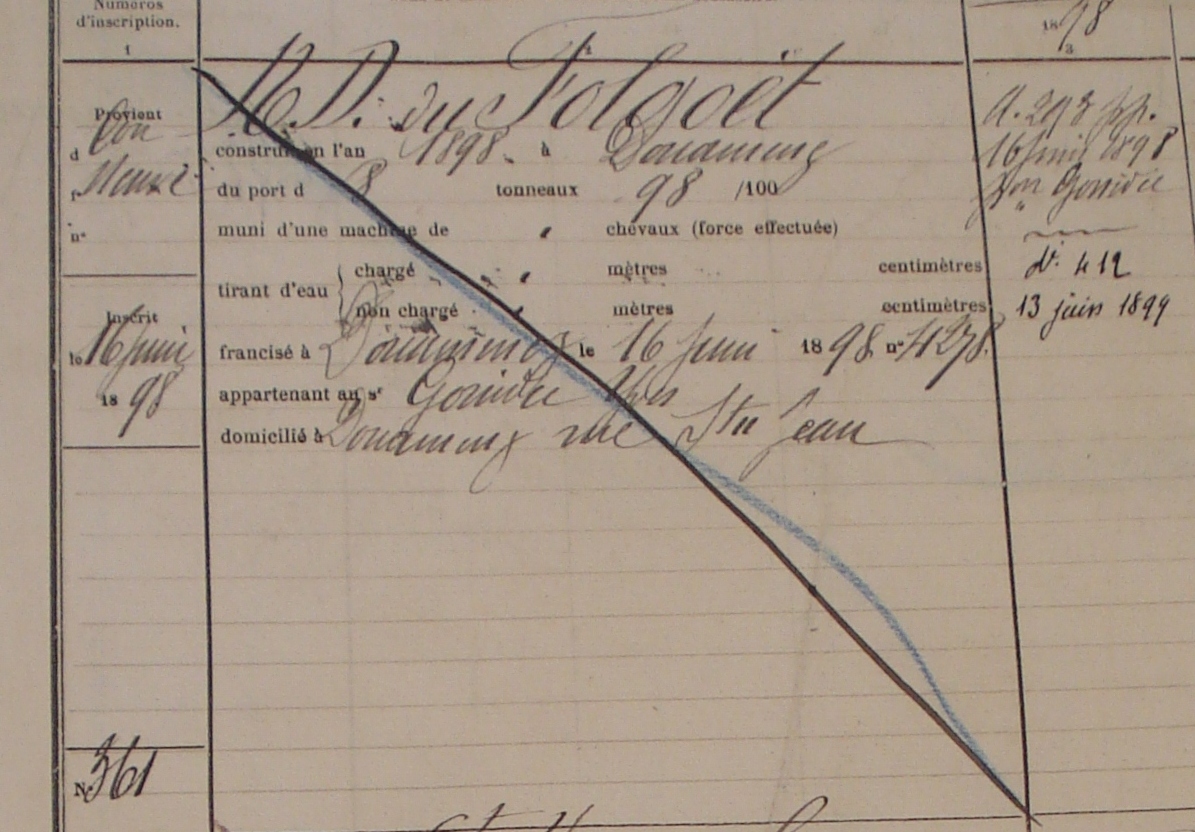 Numéros
d'inscription.
1
2
18 98
3
N. D. du Folgoët
Provient
d Con
f Neuve
nº
construit en l'an 1898 à Douarnenez
du port d 8 tonneaux 98 /100
muni d'une machine de " chevaux (force effectuée)
tirant d'eau
chargé " mètres centimètres
non chargé " mètres centimètres
Inscrit
le 16 Juin
18 98
francisé à Douarnenez le 16 Juin 18 98 nº 4278.
appartenant au sr Gonidec Yves
domicilié à Douarnenez rue Ste Jean
16 Juin 1898
Gonidec
d: 412
13 juin 1899
N. 361